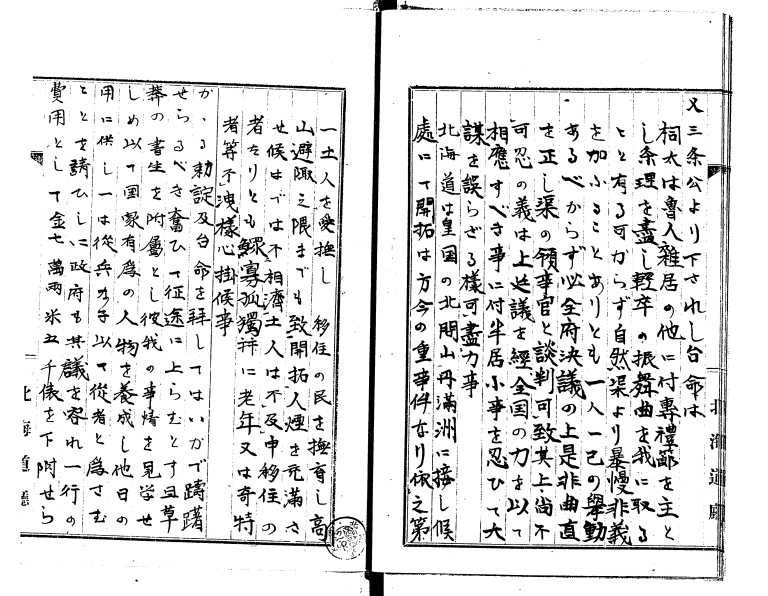 又三条公より下されし台命は
柯太は魯人雑居の他に付専禮節を主と
し条理を盡し軽卒の振舞曲を我に取る
とと有る可からず自然渠より暴慢非義
を加ふることありとも一人一己の擧動
あるべからず必全府決議の上是非曲直
を正し渠の領事官と談判可致其上尚不
可忍の義は上廷議を經全国の力を以て
相應すべき事に付半居小事を忍ひて大
謀を誤らざる樣可盡力事
北海道は皇国の北門山丹滿洲に接し候
處にて開拓は方今の重事件なり依之第
北海道廳
一土人を愛撫し 移住の民を撫育し高
山避陬之隈までも致開拓人煙を充滿さ
せ候はでは不相濟土人は不及申移住の
者たりとも鰥寡孤獨幷に老年又は奇特
者等不洩樣心掛候事
かゝる勅諚及台命を拜してはいかで躊躇
せらるべき奮ひて征途に上らむとす且草
莽の書生を附屬とし彼我の事情を見学せ
しめ以て国家有爲の人物を養成し他日の
用に供し一は從兵力子以て從者と爲さむ
ととを請ひしに政府も其議を容れ一行の
費用として金七萬両米五千俵を下附せら
北海道廳